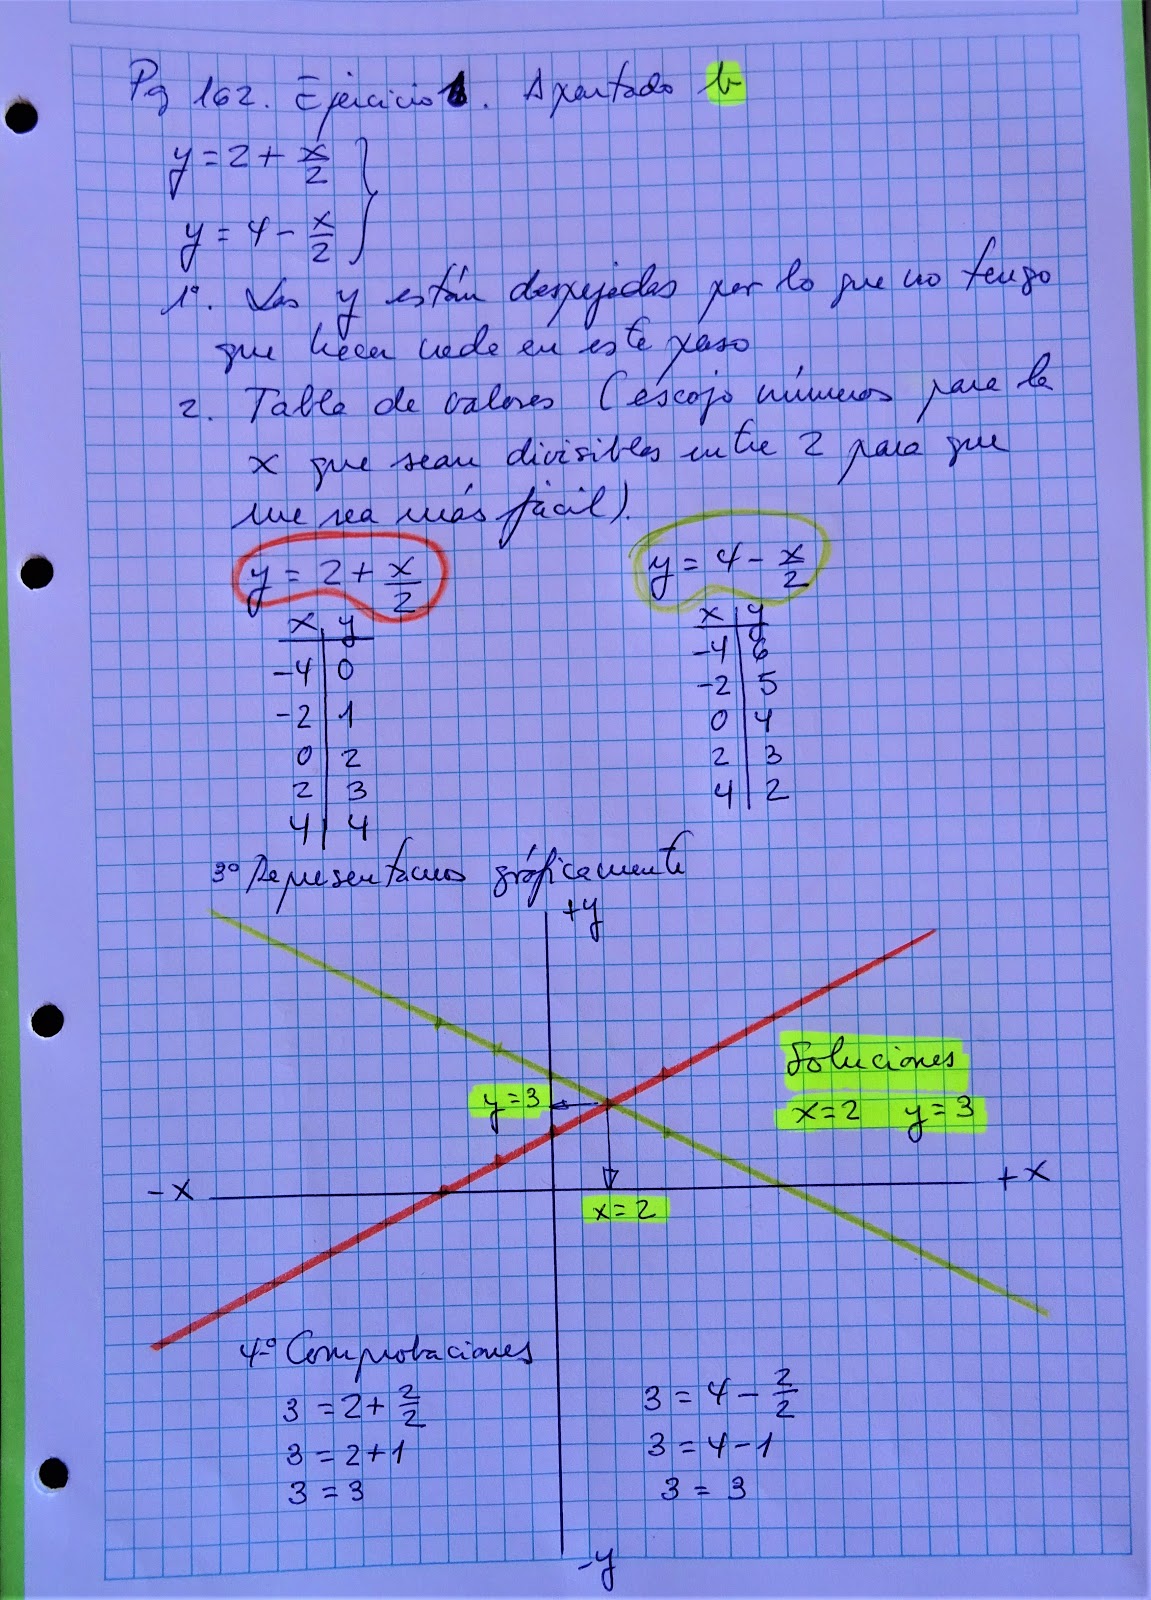 Pg 162. Ejercicio 1. Apartado b
y = 2 + x/2 }
y = 4 - x/2
1º. Las y están despejadas por lo que no tengo
que hacer nada en este paso
2. Tabla de valores (escojo números para la
x que sean divisibles entre 2 para que
me sea más fácil).
y = 2 + x/2
x | y
-4 | 0
-2 | 1
0 | 2
2 | 3
4 | 4
y = 4 - x/2
x | y
-4 | 6
-2 | 5
0 | 4
2 | 3
4 | 2
3º Representamos gráficamente
+y
Soluciones
x = 2 y = 3
y = 3
-x
+x
x = 2
4º Comprobaciones
3 = 2 + 2/2
3 = 2 + 1
3 = 3
3 = 4 - 2/2
3 = 4 - 1
3 = 3
-y